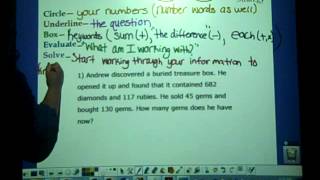 Circle- your numbers (number words as well)
Underline- the question
Box- Keywords (sum (+), the difference (-), each (+,×)
Evaluate- "What am I working with?"
Solve- Start working through your information to
1) Andrew discovered a buried treasure box. He
opened it up and found that it contained 682
diamonds and 117 rubies. He sold 45 gems and
bought 130 gems. How many gems does he have
now?